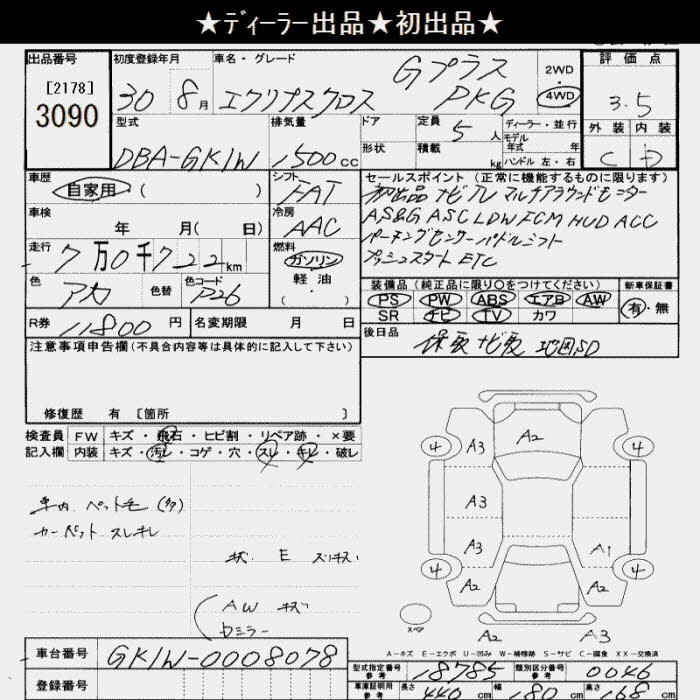 ★ディーラー出品★初出品★
出品番号 初度登録年月 車名・グレード 評価点
[2178] Gプラス 2WD
3090 30 8月 エクリプスクロス PKG 4WD 3.5
型式 排気量 ドア 定員 5人 ディーラー・並行 外装 内装
モデル年式 年
DBA-GK1W 1500cc 形状 積載 kg ハンドル 左・右 C D
車歴 シフト セールスポイント (正常に機能するものに限ります)
自家用 ( ) FAT 初出品 ナビTV マルチアラウンドモニター
車検 冷房 AS&G ASC LDW FCM HUD ACC
年 月( 日) AAC パーキングセンサー パドルシフト
走行 燃料 プッシュスタート ETC
7万0千722km ガソリン
色 色替 色コード 軽油 装備品 (純正品に限り○をつけてください) 新車保証書
アカ P26 ( ・ ) PS PW ABS エアB AW 有・無
SR ナビ TV カワ
R券 11800円 名変期限 月 日 後日品
保取 ナビ取 地図SD
注意事項申告欄(不具合内容等は具体的に記入して下さい)
修復歴 有 [箇所 ]
検査員 FW キズ・飛石・ヒビ割・リペア跡・×要
記入欄 内装 キズ・汚レ・コゲ・穴・スレ・キレ・破レ
車内 ペット毛 (多)
カーペット スレキレ
状. E スリキズ
AW キズ
Dミラー
4 A3 A2 4
A3
A3 A1
4 A2 A2 4
スペア A2 A3
A-キズ E-エクボ U-凹み W-補修跡 S-サビ C-腐食 XX-交換済
車台番号 GK1W-0008078
型式指定番号 参考 18785 類別区分番号 参考 0046
登録番号
車庫証明用 参考 長さ 440cm 幅 180cm 高さ 168cm